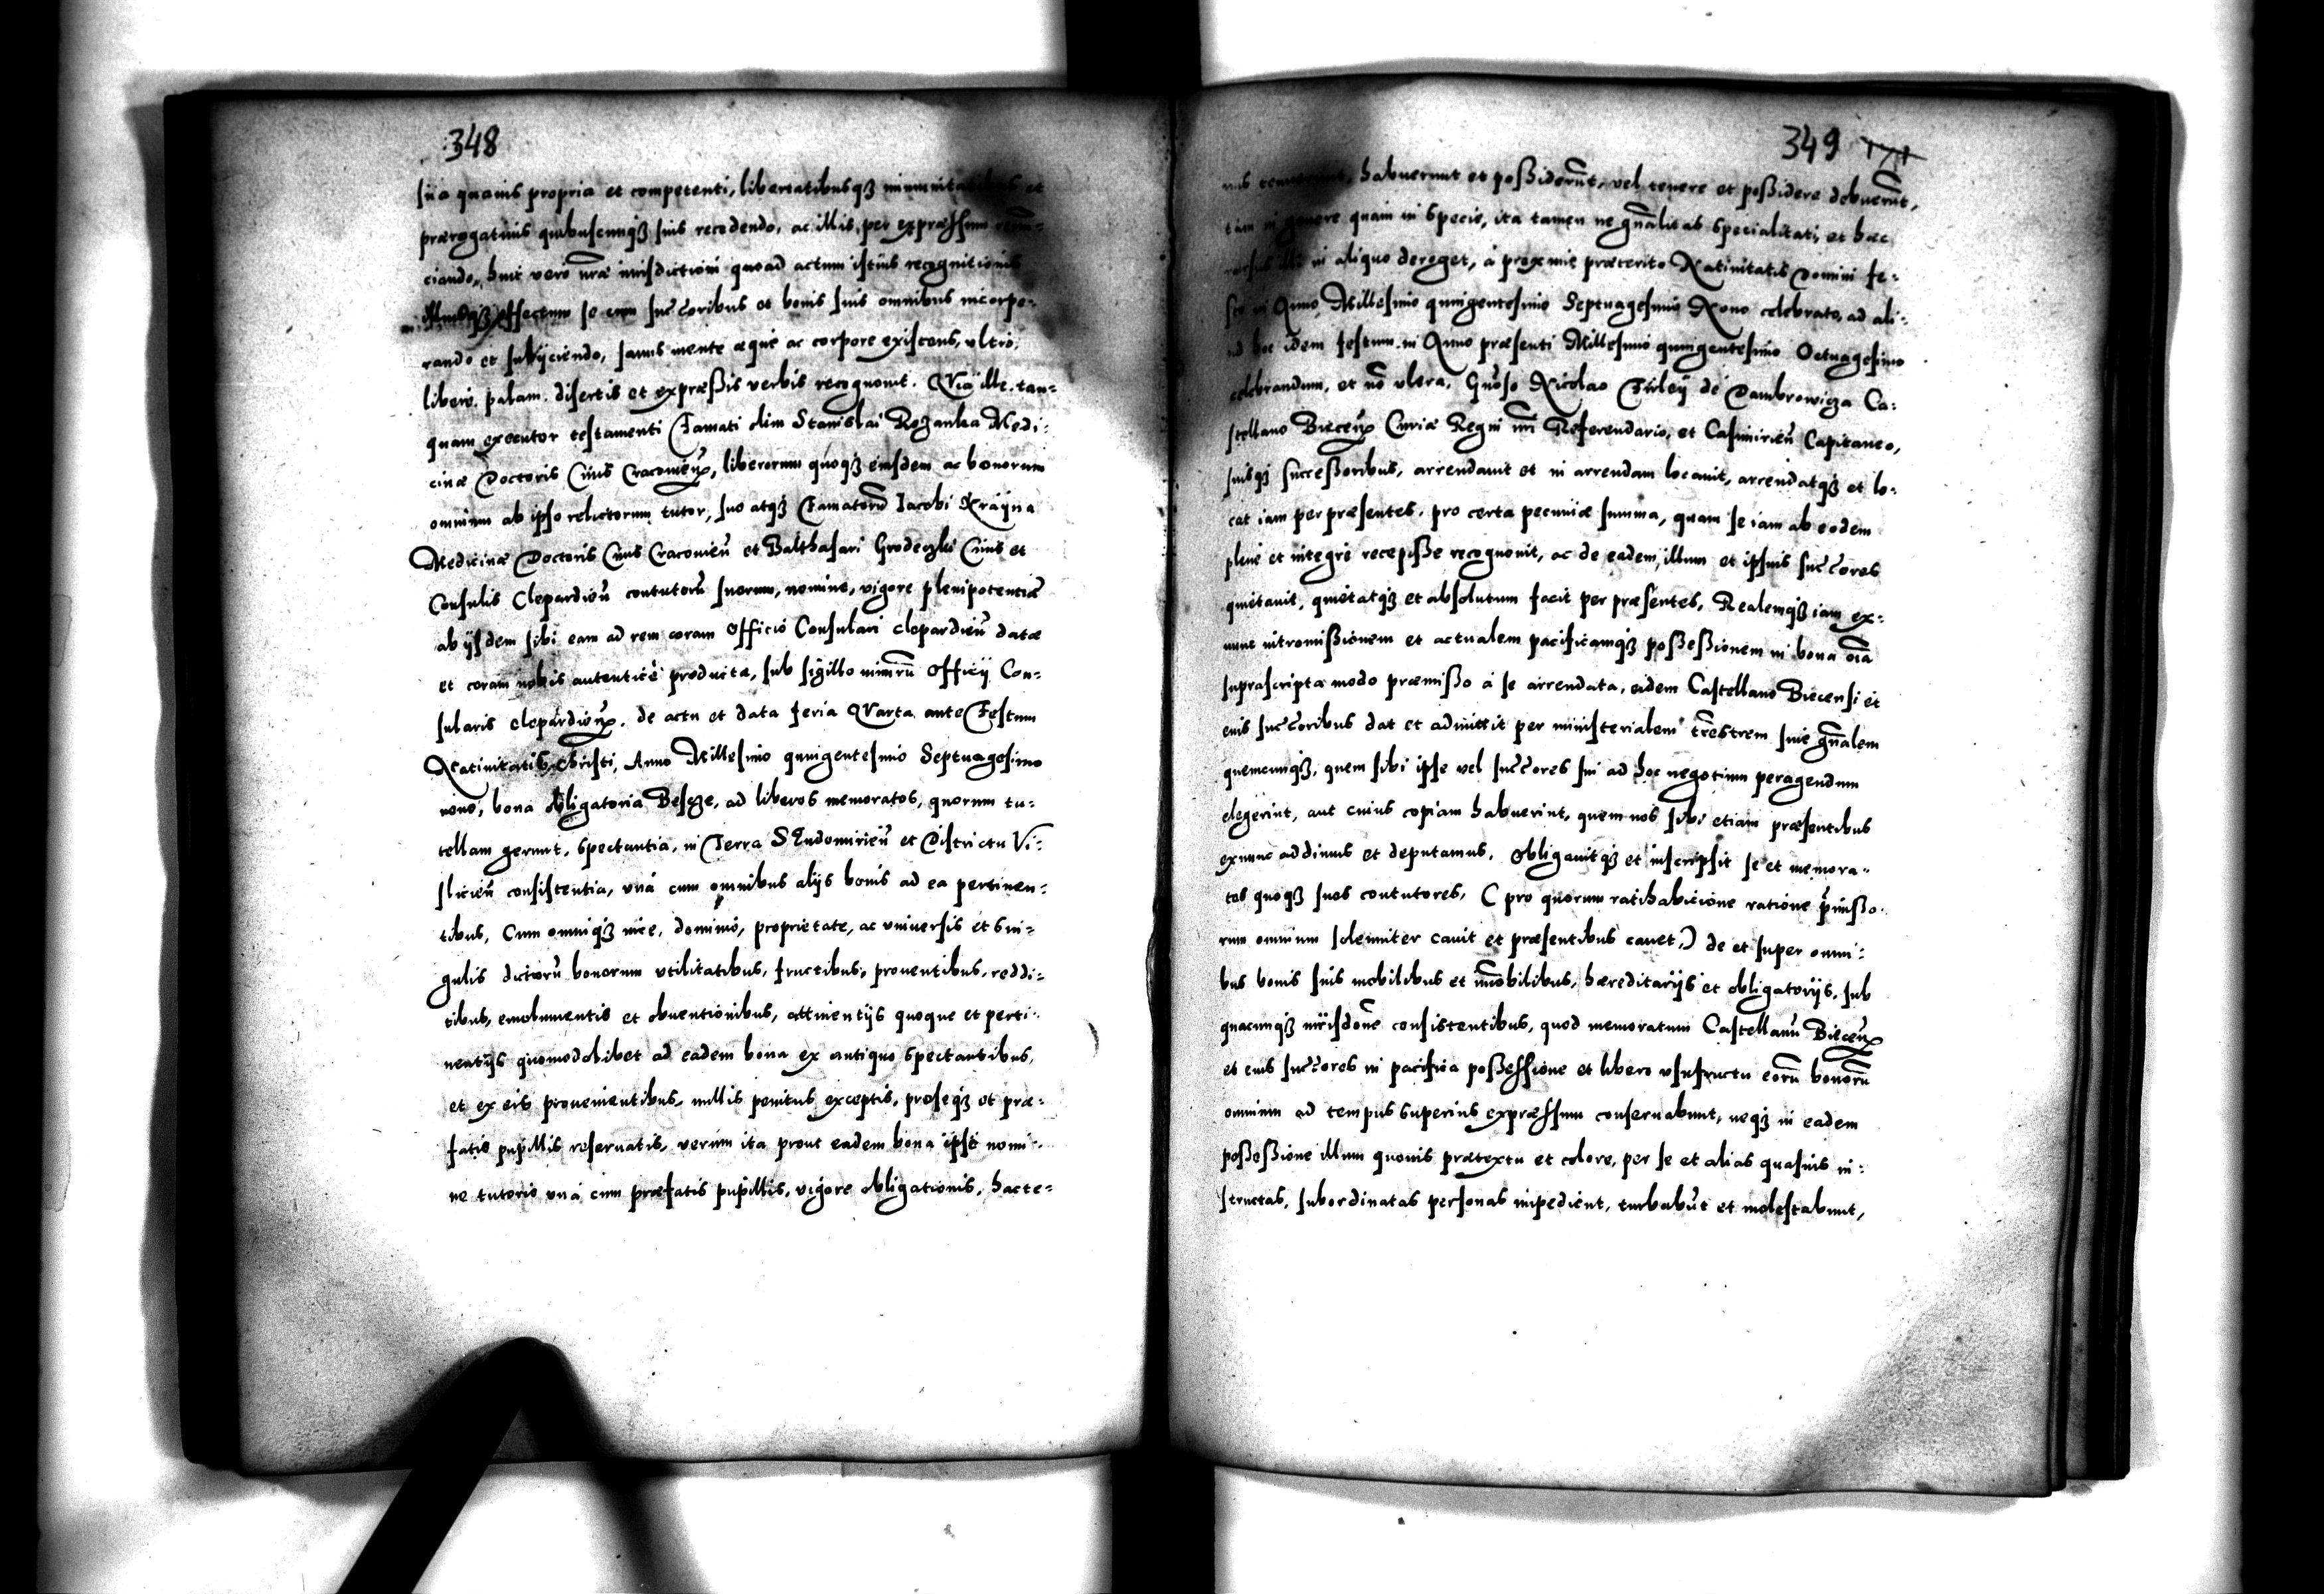 348
sua quavis propria et competenti, libertatibusq3 immunitatibus et
prærogativis quibuscunq3 suis recedendo, ac illis per expræssum renũ=
ciando, huic vero nr̃æ iurisdictioni quoad actum istius recognitionis
illiusq3 effectum se cum succ̃oribus et bonis suis omnibus incorpo=
rando et subÿciendo, sanus mente æque ac corpore existens, ultro,
libere, palam, disertis et expræßis verbis recognovit. Quia ille, tan=
quam executor testamenti Famati olim Stanislai Rozanka Medi:
cinæ Doctoris Civis Cracovieñ, liberorum quoq3 eiusdem ac bonorum
omnium ab ipso relictorum tutor, suo atq3 Famatorũ Jacobi Krayna
Medicinæ Doctoris Civis Cracovieñ et Balthasari Grodeczki Civis et
Consulis Clepardieñ contutorũ suorum, nomine, vigore plenipotentiæ
ab ÿsdem sibi eam ad rem coram Officio Consulari Clepardieñ datæ
et coram nobis autenticè productæ, sub sigillo nimirũ Officÿ Con=
sularis Clepardieñ. de actu et data feria Quarta ante Festum
Nativitatis Christi, Anno Millesimo quingentesimo Septuagesimo
nono, bona obligatoria Besze, ad liberos memoratos, quorum tu=
tellam gerunt, spectantia, in Terra SEndomirieñ et Districtu Vi=
slicieñ consistentia, unà cum omnibus alÿs bonis ad ea pertinen=
tibus, Cum omniq3 iure, dominio, proprietate, ac universis et sin=
gulis dictorũ bonorum utilitatibus, fructibus, proventibus, reddi=
tibus, emolumentis et obventionibus, attinentÿs quoque et perti=
nentÿs quomodolibet ad eadem bona ex antiquo spectantibus,
et ex eis provenientibus, nullis penitus exceptis, proseq3 et præ=
fatis pupillis reservatis, verum ita prout eadem bona ipse nomi=
ne tutorio unà cum præfatis pupillis, vigore obligationis, hacte=
349 171
nus tenuerunt, habuerunt et poßiderũt, vel tenere et poßidere debuerũt,
tam in genere quam in specie, ita tamen ne gñalitas specialitati, et hæc
rorsus illi in aliquo deroget, à proxime præterito Nativitatis Domini fe=
sto in Anno Millesimo quingentesimo Septuagesimo Nono celebrato, ad ali=
ud hoc idem festum in Anno præsenti Millesimo quingentesimo Octuagesimo
celebrandum, et nõ ultra, Gñoso Nicolao Firleÿ de Dambrowicza Ca=
stellano Bieceñ Curiæ Regni nr̃i Referendario, et Casimirieñ Capitaneo,
suisq3 succeßoribus, arrendavit et in arrendam locavit, arrendatq3 et lo=
cat iam per præsentes, pro certa pecuniæ summa, quam se iam ab eodem
plene et integre recepiße recognovit, ac de eadem, illum et ipsius succ̃ores
quietavit, quietatq3 et absolutum facit per præsentes, Realemq3 iam ex=
nunc intromißionem et actualem pacificamq3 poßeßionem in bona oĩa
suprascripta modo præmißo à se arrendata, eidem Castellano Biecensi et
eius succ̃oribus dat et admittit per ministerialem tr̃estrem sive gñalem
quemcunq3, quem sibi ipse vel succ̃ores sui ad hoc negotium peragendum
elegerint, aut cuius copiam habuerint, quem nos sibi etiam præsentibus
exnunc addimus et deputamus. Obligavitq3 et inscripsit se et memora=
tos quoq3 suos contutores, (pro quorum ratihabicione ratione p̃mißo=
rum omnium solemniter cavit et præsentibus cavet,) de et super omni=
bus bonis suis mobilibus et im̃obilibus, hæreditarÿs et obligatorÿs, sub
quacunq3 iurisdõne consistentibus, quod memoratum Castellanũ Bieceñ
et eius succ̃ores in pacifica poßessione et libero usufructu eorũ bonorũ
omnium ad tempus superius expræssum conservabunt, neq3 in eadem
poßeßione illum quovis prætextu et colore, per se et alias quasvis in=
structas, subordinatas personas impedient, turbabũt et molestabunt,